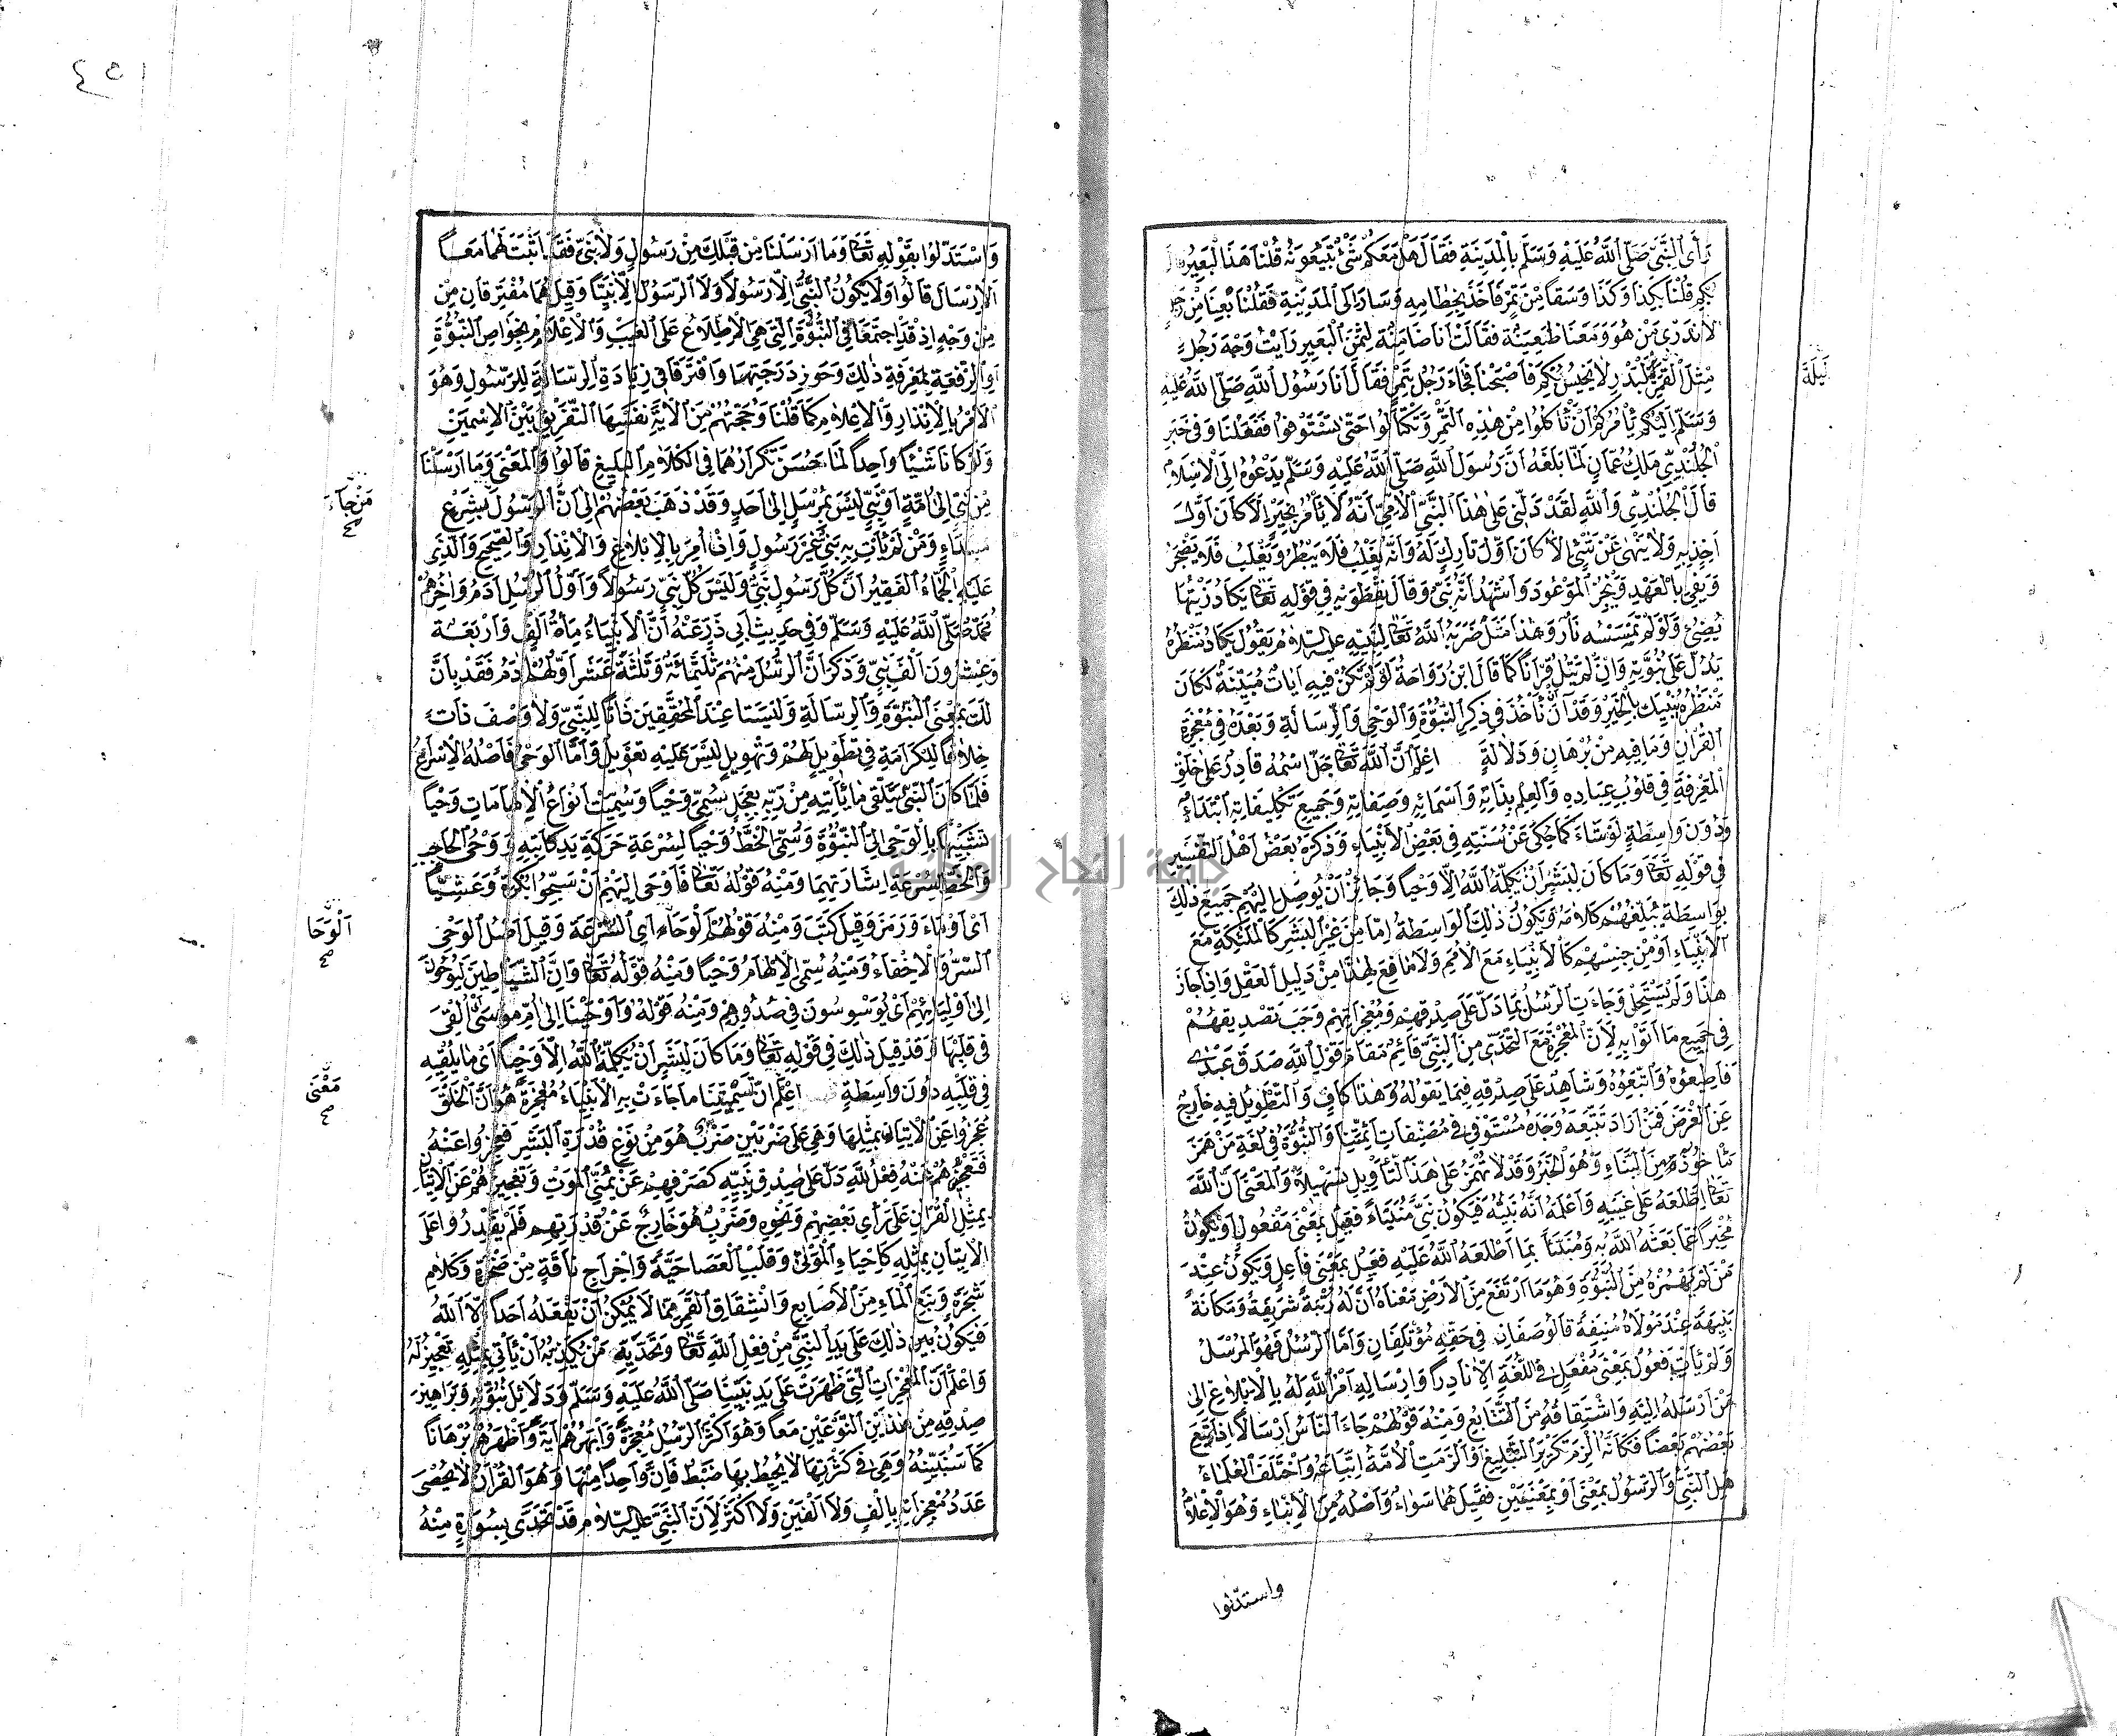 رَأَى النَّبِيَّ صَلَّى اللَّهُ عَلَيْهِ وَسَلَّمَ بِالْمَدِينَةِ فَقَالَ هَلْ مَعَكُمْ شَيْءٌ تَبِيعُونَهُ قُلْنَا هَذَا الْبَعِيرُ
بِكَمْ قُلْنَا بِكَذَا وَكَذَا وَسَقاً مِنْ تَمْرٍ فَأَخَذَ بِخِطَامِهِ وَسَارَ إِلَى الْمَدِينَةِ فَقُلْنَا بِعْنَا مِنْ رَجُلٍ
لَا نَدْرِي مَنْ هُوَ وَمَعَنَا ظَعِينَةٌ فَقَالَتْ أَنَا ضَامِنَةٌ لِثَمَنِ الْبَعِيرِ رَأَيْتُ وَجْهَ رَجُلٍ
مِثْلَ الْقَمَرِ لَيْلَةَ الْبَدْرِ لَا يَخِيسُ بِكُمْ فَأَصْبَحْنَا فَجَاءَ رَجُلٌ بِتَمْرٍ فَقَالَ أَنَا رَسُولُ رَسُولِ اللَّهِ صَلَّى اللَّهُ عَلَيْهِ
وَسَلَّمَ إِلَيْكُمْ يَأْمُرُكُمْ أَنْ تَأْكُلُوا مِنْ هَذِهِ التَّمْرِ وَتَكْتَالُوا حَتَّى تَسْتَوْفُوا فَفَعَلْنَا وَفِي خَبَرِ
الْجُلَنْدِيِّ مَلِكِ عُمَانَ لَمَّا بَلَغَهُ أَنَّ رَسُولَ اللَّهِ صَلَّى اللَّهُ عَلَيْهِ وَسَلَّمَ يَدْعُوهُ إِلَى الْإِسْلَامِ
قَالَ الْجُلَنْدِيُّ وَاللَّهِ لَقَدْ دَلَّنِي عَلَى هَذَا النَّبِيِّ الْأُمِّيِّ أَنَّهُ لَا يَأْمُرُ بِخَيْرٍ إِلَّا كَانَ أَوَّلَ
آخِذٍ بِهِ وَلَا يَنْهَى عَنْ شَيْءٍ إِلَّا كَانَ أَوَّلَ تَارِكٍ لَهُ وَأَنَّهُ يَغْلِبُ فَلَا يَبْطَرُ وَيُغْلَبُ فَلَا يَضْجَرُ
وَيَفِي بِالْعَهْدِ وَيُنْجِزُ الْمَوْعُودَ وَأَشْهَدُ أَنَّهُ نَبِيٌّ وَقَالَ نِفْطَوَيْهِ فِي قَوْلِهِ تَعَالَى يَكَادُ زَيْتُهَا
يُضِيءُ وَلَوْ لَمْ تَمْسَسْهُ نَارٌ وَهَذَا مَثَلٌ ضَرَبَهُ اللَّهُ تَعَالَى لِنَبِيِّهِ عَلَيْهِ السَّلَامُ يَقُولُ يَكَادُ مَنْظَرُهُ
يَدُلُّ عَلَى نُبُوَّتِهِ وَإِنْ لَمْ يَتْلُ قُرْآنًا كَمَا قَالَ ابْنُ رَوَاحَةَ لَوْ لَمْ تَكُنْ فِيهِ آيَاتٌ مُبَيِّنَةٌ لَكَانَ
مَنْظَرُهُ يُنْبِيكَ بِالْخَيْرِ وَقَدْ آنَ أَنْ نَأْخُذَ فِي ذِكْرِ النُّبُوَّةِ وَالْوَحْيِ وَالرِّسَالَةِ وَبَعْدَهُ فِي مُعْجِزَةِ
الْقُرْآنِ وَمَا فِيهِ مِنْ بُرْهَانٍ وَدَلَالَةٍ اعْلَمْ أَنَّ اللَّهَ تَعَالَى جَلَّ اسْمُهُ قَادِرٌ عَلَى خَلْقِ
الْمَعْرِفَةِ فِي قُلُوبِ عِبَادِهِ وَالْعِلْمِ بِذَاتِهِ وَأَسْمَائِهِ وَصِفَاتِهِ وَجَمِيعِ تَكْلِيفَاتِهِ ابْتِدَاءً
وَدُونَ وَاسِطَةٍ لَوْ شَاءَ كَمَا حُكِيَ عَنْ سُنَّتِهِ فِي بَعْضِ الْأَنْبِيَاءِ وَذَكَرَهُ بَعْضُ أَهْلِ التَّفْسِيرِ
فِي قَوْلِهِ تَعَالَى وَمَا كَانَ لِبَشَرٍ أَنْ يُكَلِّمَهُ اللَّهُ إِلَّا وَحْيًا وَجَائِزٌ أَنْ يُوصِلَ إِلَيْهِمْ جَمِيعَ ذَلِكَ
بِوَاسِطَةٍ تُبَلِّغُهُمْ كَلَامَهُ وَتَكُونُ ذَلِكَ الْوَاسِطَةُ إِمَّا مِنْ غَيْرِ الْبَشَرِ كَالْمَلَئِكَةِ مَعَ
الْأَنْبِيَاءِ أَوْ مِنْ جِنْسِهِمْ كَالْأَنْبِيَاءِ مَعَ الْأُمَمِ وَلَا مَانِعَ لِهَذَا مِنْ دَلِيلِ الْعَقْلِ وَإِذَا جَازَ
هَذَا وَلَمْ يَسْتَحِلْ وَجَاءَتِ الرُّسُلُ بِمَا دَلَّ عَلَى صِدْقِهِمْ وَمُعْجِزَاتِهِمْ وَجَبَ تَصْدِيقُهُمْ
فِي جَمِيعِ مَا أَتَوْا بِهِ لِأَنَّ الْمُعْجِزَةَ مَعَ التَّحَدِّي مِنَ النَّبِيِّ قَائِمٌ مَقَامَ قَوْلِ اللَّهِ صَدَقَ عَبْدِي
فَأَطِيعُوهُ وَاتَّبِعُوهُ وَشَاهِدٌ عَلَى صِدْقِهِ فِيمَا يَقُولُهُ وَهَذَا كَافٍ وَالتَّطْوِيلُ فِيهِ خَارِجٌ
عَنِ الْغَرَضِ فَمَنْ أَرَادَ تَتَبُّعَهُ وَجَدَهُ مُسْتَوْفًى فِي مُصَنَّفَاتِ أَئِمَّتِنَا وَالنُّبُوَّةُ فِي لُغَةِ مَنْ هَمَزَ
مَأْخُوذَةٌ مِنَ النَّبَاءِ وَهُوَ الْخَبَرُ وَقَدْ لَا تُهْمَزُ عَلَى هَذَا التَّأْوِيلِ تَسْهِيلًا وَالْمَعْنَى أَنَّ اللَّهَ
تَعَالَى أَطْلَعَهُ عَلَى غَيْبِهِ وَأَعْلَمَهُ أَنَّهُ نَبِيُّهُ فَيَكُونُ نَبِيٌّ مُنَبَّأً فَعِيلٌ بِمَعْنَى مَفْعُولٍ أَوْ يَكُونُ
مُخْبِرًا عَمَّا بَعَثَهُ اللَّهُ بِهِ وَمُنَبِّئًا بِمَا أَطْلَعَهُ اللَّهُ عَلَيْهِ فَعِيلٌ بِمَعْنَى فَاعِلٍ وَيَكُونُ عِنْدَ
مَنْ لَمْ يَهْمِزْهُ مِنَ النَّبْوَةِ وَهُوَ مَا ارْتَفَعَ مِنَ الْأَرْضِ مَعْنَاهُ أَنَّ لَهُ رُتْبَةً شَرِيفَةً وَمَكَانَةً
نَبِيهَةً عِنْدَ مَوْلَاهُ مُنِيفَةً فَالْوَصْفَانِ فِي حَقِّهِ مُؤْتَلِفَانِ وَأَمَّا الرَّسُولُ فَهُوَ الْمُرْسَلُ
وَلَمْ يَأْتِ فَعُولٌ بِمَعْنَى مُفْعَلٍ فِي اللُّغَةِ إِلَّا نَادِرًا وَإِرْسَالُهُ أَمْرُ اللَّهِ لَهُ بِالْإِبْلَاغِ إِلَى
مَنْ أَرْسَلَهُ إِلَيْهِ وَاشْتِقَاقُهُ مِنَ التَّتَابُعِ وَمِنْهُ قَوْلُهُمْ جَاءَ النَّاسُ أَرْسَالًا إِذَا تَبِعَ
بَعْضُهُمْ بَعْضًا فَكَأَنَّهُ أُلْزِمَ تَكْرِيرَ التَّبْلِيغِ أَوْ أُلْزِمَتِ الْأُمَّةُ اتِّبَاعَهُ وَاخْتَلَفَ الْعُلَمَاءُ
هَلِ النَّبِيُّ وَالرَّسُولُ بِمَعْنًى أَوْ بِمَعْنَيَيْنِ فَقِيلَ هُمَا سَوَاءٌ وَأَصْلُهُ مِنَ الْإِنْبَاءِ وَهُوَ الْإِعْلَامُ
لَيْلَةَ
واستدلوا
٤٥١
وَاسْتَدَلُّوا بِقَوْلِهِ تَعَالَى وَمَا أَرْسَلْنَا مِنْ قَبْلِكَ مِنْ رَسُولٍ وَلَا نَبِيٍّ فَقَدْ أَثْبَتَ لَهُمَا مَعًا
الْإِرْسَالَ قَالُوا وَلَا يَكُونُ النَّبِيُّ إِلَّا رَسُولًا وَلَا الرَّسُولُ إِلَّا نَبِيًّا وَقِيلَ هُمَا مُفْتَرِقَانِ مِنْ
مِنْ وَجْهٍ إِذْ قَدِ اجْتَمَعَا فِي النُّبُوَّةِ الَّتِي هِيَ الْإِطْلَاعُ عَلَى الْغَيْبِ وَالْإِعْلَامُ بِخَوَاصِّ النُّبُوَّةِ
أَوِ الرِّفْعَةِ لِمَعْرِفَةِ ذَلِكَ وَحَوْزِ دَرَجَتِهَا وَافْتَرَقَا فِي زِيَادَةِ الرِّسَالَةِ لِلرَّسُولِ وَهُوَ
الْأَمْرُ بِالْإِنْذَارِ وَالْإِعْلَامِ كَمَا قُلْنَا وَحُجَّتُهُمْ مِنَ الْآيَةِ نَفْسِهَا التَّفْرِيقُ بَيْنَ الْإِسْمَيْنِ
وَلَوْ كَانَا شَيْئًا وَاحِدًا لَمَا حَسُنَ تَكْرَارُهُمَا فِي الْكَلَامِ الْبَلِيغِ قَالُوا وَالْمَعْنَى وَمَا أَرْسَلْنَا
مِنْ نَبِيٍّ إِلَى أُمَّةٍ أَوْ نَبِيٍّ لَيْسَ بِمُرْسَلٍ إِلَى أَحَدٍ وَقَدْ ذَهَبَ بَعْضُهُمْ إِلَى أَنَّ الرَّسُولَ بِشَرْعٍ
مُبْتَدَاءٍ وَمَنْ لَمْ يَأْتِ بِهِ نَبِيٌّ غَيْرُ رَسُولٍ وَإِنْ أُمِرَ بِالْإِبْلَاغِ وَالْإِنْذَارِ وَالصَّحِيحُ وَالَّذِي
عَلَيْهِ الْجَمَّاءُ الْغَفِيرُ أَنَّ كُلَّ رَسُولٍ نَبِيٌّ وَلَيْسَ كُلُّ نَبِيٍّ رَسُولًا وَأَوَّلُ الرُّسُلِ آدَمُ وَآخِرُهُمْ
مُحَمَّدٌ صَلَّى اللَّهُ عَلَيْهِ وَسَلَّمَ وَفِي حَدِيثِ أَبِي ذَرٍّ عَنْهُ أَنَّ الْأَنْبِيَاءَ مِأَةُ أَلْفٍ وَأَرْبَعَةٌ
وَعِشْرُونَ أَلْفَ نَبِيٍّ وَذَكَرَ أَنَّ الرُّسُلَ مِنْهُمْ ثَلَثُمِائَةٍ وَثَلَثَةَ عَشَرَ أَوَّلُهُمْ آدَمُ فَقَدْ بَانَ
لَكَ مَعْنَى النُّبُوَّةِ وَالرِّسَالَةِ وَلَيْسَتَا عِنْدَ الْمُحَقِّقِينَ ذَاتًا لِلنَّبِيِّ وَلَا وَصْفَ ذَاتٍ
خِلَافًا لِلْكَرَّامِيَّةِ فِي تَطْوِيلٍ لَهُمْ وَتَهْوِيلٍ لَيْسَ عَلَيْهِ تَعْوِيلٌ وَأَمَّا الْوَحْيُ فَأَصْلُهُ الْإِسْرَاعُ
فَلَمَّا كَانَ النَّبِيُّ يَتَلَقَّى مَا يَأْتِيهِ مِنْ رَبِّهِ بِعَجَلٍ سُمِّيَ وَحْيًا وَسُمِّيَتْ أَنْوَاعُ الْإِلْهَامَاتِ وَحْيًا
تَشْبِيهًا بِالْوَحْيِ إِلَى النُّبُوَّةِ وَسُمِّيَ الْخَطُّ وَحْيًا لِسُرْعَةِ حَرَكَةِ يَدِ كَاتِبِهِ وَوَحْيُ الْحَاجِبِ
وَاللَّحْظِ سُرْعَةُ إِشَارَتِهِمَا وَمِنْهُ قَوْلُهُ تَعَالَى فَأَوْحَى إِلَيْهِمْ أَنْ سَبِّحُوا بُكْرَةً وَعَشِيًّا
أَيْ أَوْمَاءَ وَرَمَزَ وَقِيلَ كَتَبَ وَمِنْهُ قَوْلُهُمْ الْوَحَاءَ أَيِ السُّرْعَةَ وَقِيلَ أَصْلُ الْوَحْيِ
السِّرُّ وَالْإِخْفَاءُ وَمِنْهُ سُمِّيَ الْإِلْهَامُ وَحْيًا وَمِنْهُ قَوْلُهُ تَعَالَى وَإِنَّ الشَّيَاطِينَ لَيُوحُونَ
إِلَى أَوْلِيَائِهِمْ أَيْ يُوَسْوِسُونَ فِي صُدُورِهِمْ وَمِنْهُ قَوْلُهُ وَأَوْحَيْنَا إِلَى أُمِّ مُوسَى أَيْ أُلْقِيَ
فِي قَلْبِهَا وَقَدْ قِيلَ ذَلِكَ فِي قَوْلِهِ تَعَالَى وَمَا كَانَ لِبَشَرٍ أَنْ يُكَلِّمَهُ اللَّهُ إِلَّا وَحْيًا أَيْ مَا يُلْقِيهِ
فِي قَلْبِهِ دُونَ وَاسِطَةٍ اعْلَمْ أَنَّ تَسْمِيَتَنَا مَا جَاءَتْ بِهِ الْأَنْبِيَاءُ مُعْجِزَةً هُوَ أَنَّ الْخَلْقَ
عَجَزُوا عَنِ الْإِتْيَانِ بِمِثْلِهَا وَهِيَ عَلَى ضَرْبَيْنِ ضَرْبٌ هُوَ مِنْ نَوْعِ قُدْرَةِ الْبَشَرِ فَعَجَزُوا عَنْهُ
فَتَعْجِيزُهُمْ عَنْهُ فِعْلٌ لِلَّهِ دَلَّ عَلَى صِدْقِ نَبِيِّهِ كَصَرْفِهِمْ عَنْ تَمَنِّي الْمَوْتِ وَتَعْجِيزِهِمْ عَنِ الْإِتْيَانِ
بِمِثْلِ الْقُرْآنِ عَلَى رَأْيِ بَعْضِهِمْ وَنَحْوِهِ وَضَرْبٌ هُوَ خَارِجٌ عَنْ قُدْرَتِهِمْ فَلَمْ يَقْدِرُوا عَلَى
الْإِتْيَانِ بِمِثْلِهِ كَإِحْيَاءِ الْمَوْتَى وَقَلْبِ الْعَصَا حَيَّةً وَإِخْرَاجِ نَاقَةٍ مِنْ صَخْرَةٍ وَكَلَامِ
شَجَرَةٍ وَنَبْعِ الْمَاءِ مِنَ الْأَصَابِعِ وَانْشِقَاقِ الْقَمَرِ مِمَّا لَا يُمْكِنُ أَنْ يَفْعَلَهُ أَحَدٌ إِلَّا اللَّهُ
فَيَكُونُ بَيْنَ ذَلِكَ عَلَى يَدِ النَّبِيِّ مِنْ فِعْلِ اللَّهِ تَعَالَى وَتَحَدِّيهِ مَنْ يُكَذِّبُهُ أَنْ يَأْتِيَ بِمِثْلِهِ تَعْجِيزٌ لَهُ
وَاعْلَمْ أَنَّ الْمُعْجِزَاتِ الَّتِي ظَهَرَتْ عَلَى يَدِ نَبِيِّنَا صَلَّى اللَّهُ عَلَيْهِ وَسَلَّمَ وَدَلَائِلَ نُبُوَّتِهِ وَبَرَاهِينَ
صِدْقِهِ مِنْ هَذَيْنِ النَّوْعَيْنِ مَعًا وَهُوَ أَكْثَرُ الرُّسُلِ مُعْجِزَةً وَأَبْهَرُهُمْ آيَةً وَأَظْهَرُهُمْ بُرْهَانًا
كَمَا سَنُبَيِّنُهُ وَهِيَ فِي كَثْرَتِهَا لَا يُحِيطُ بِهَا ضَبْطٌ فَإِنَّ وَاحِدًا مِنْهَا وَهُوَ الْقُرْآنُ لَا يُحْصَى
عَدَدُ مُعْجِزَاتِهِ بِأَلْفٍ وَلَا أَلْفَيْنِ وَلَا أَكْثَرَ لِأَنَّ النَّبِيَّ عَلَيْهِ السَّلَامُ قَدْ تَحَدَّى بِسُورَةٍ مِنْهُ
مَنْ جَاءَ
صح
اَلْوَحَا
صح
مَعْنَى
صح
جامعة النجاح الوطنية